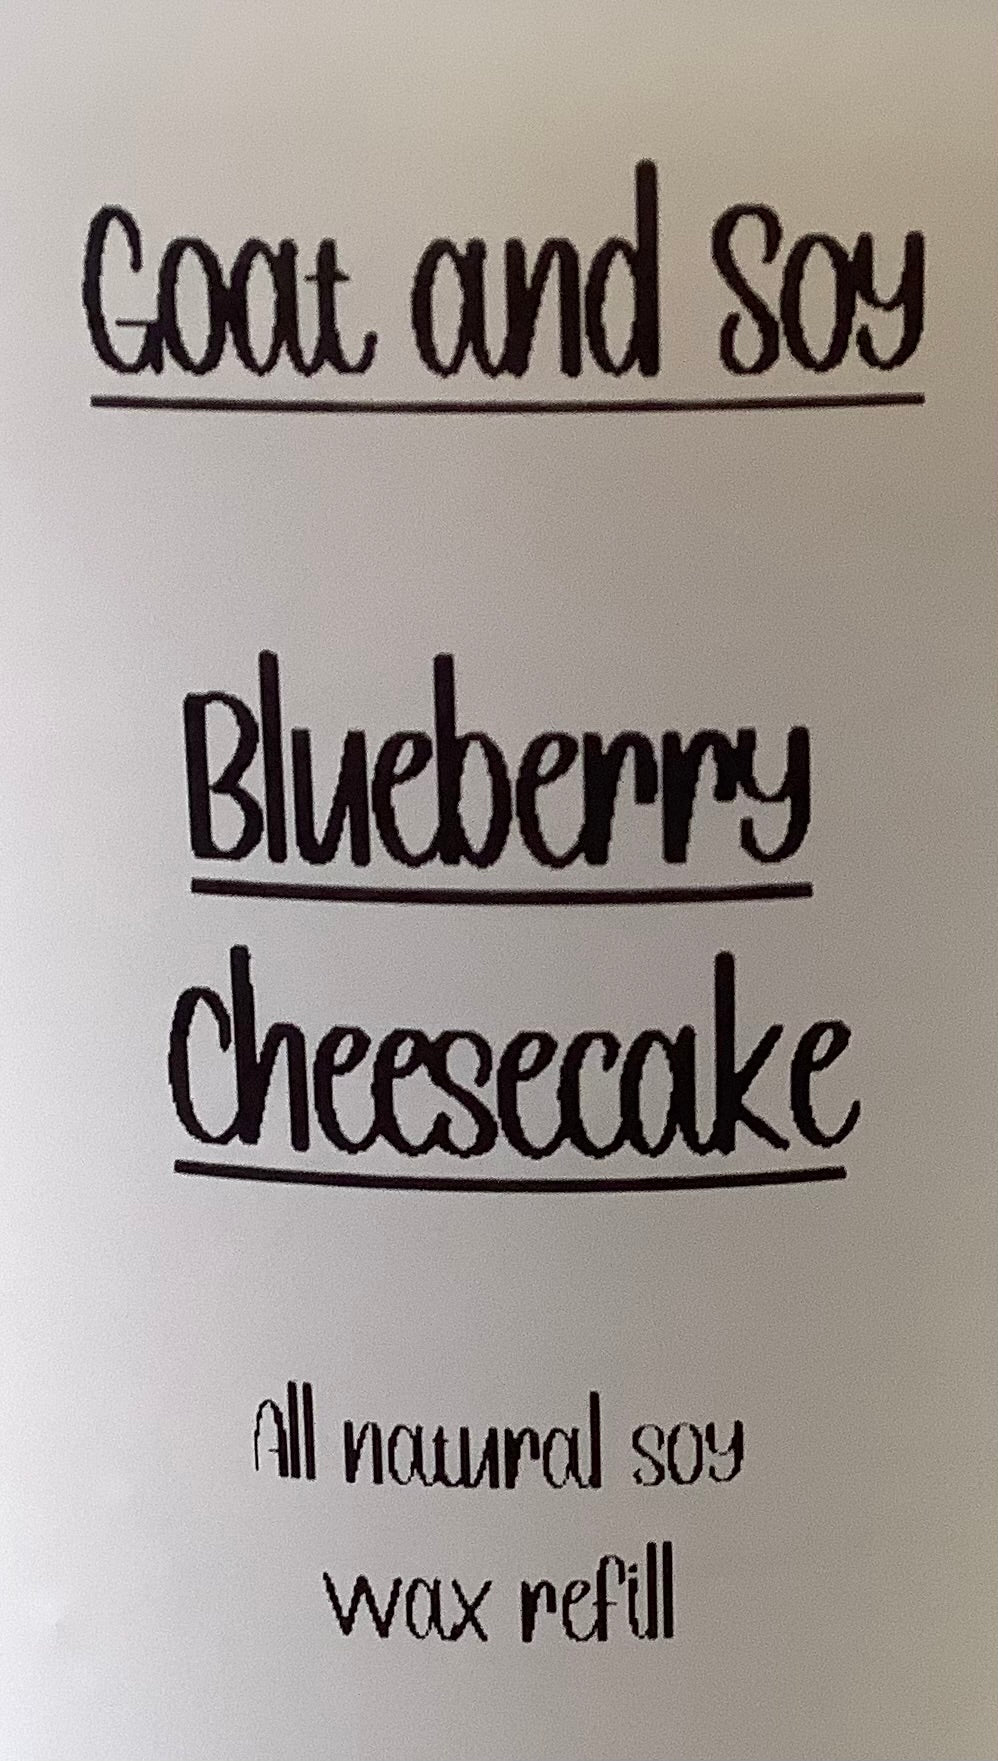 Goat and Soy
Blueberry
Cheesecake
All natural soy
wax refill